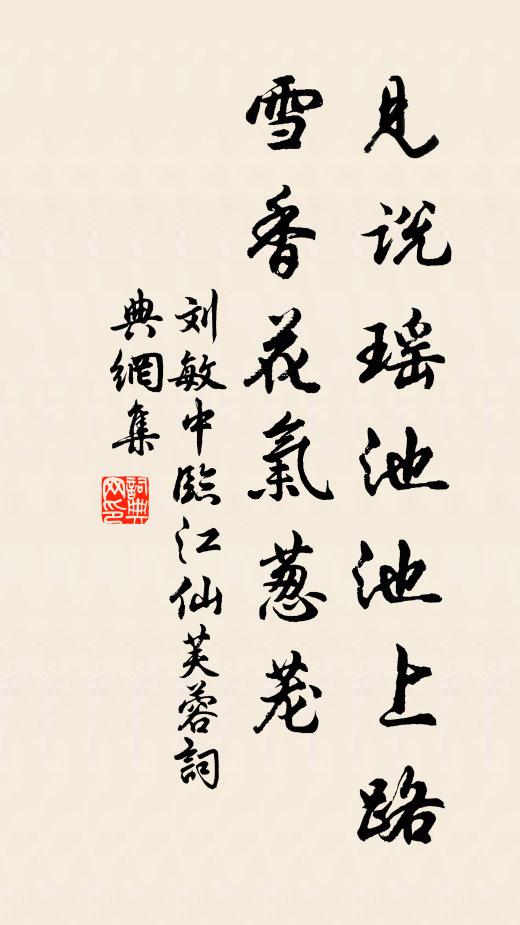 見说瑶池池上路
雪香花氣葱茏
刘敏中臨江仙芙蓉詞
典網集
詞典网印